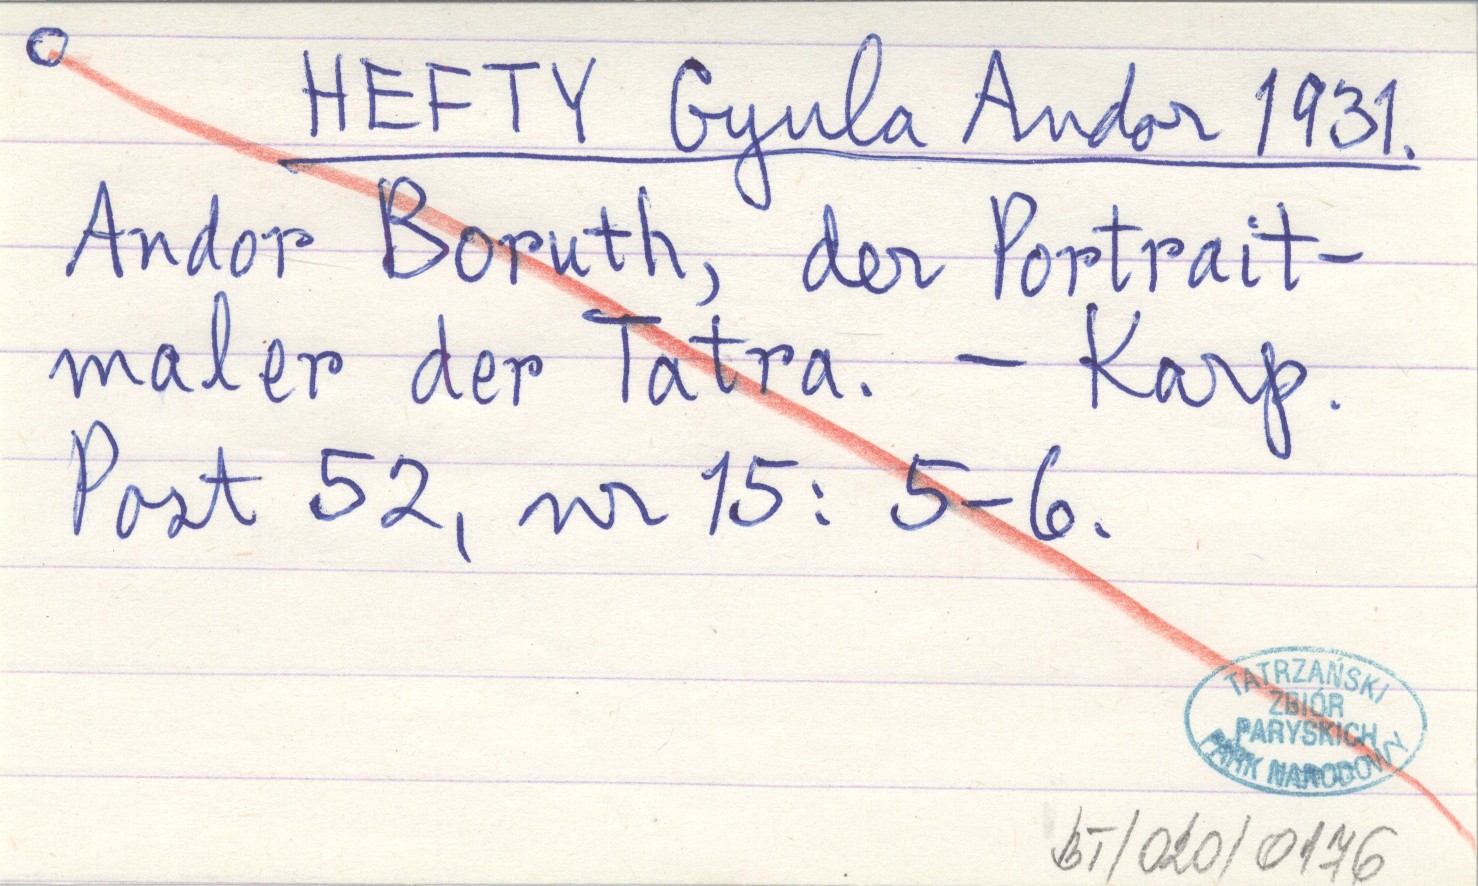 HEFTY Gyula Andor 1931.
Andor Boruth, der Portrait-
maler der Tatra. – Karp.
Post 52, nr 15: 5–6.
TATRZAŃSKI
ZBIÓR
PARYSKICH
PARK NARODOWY
BT/020/0176